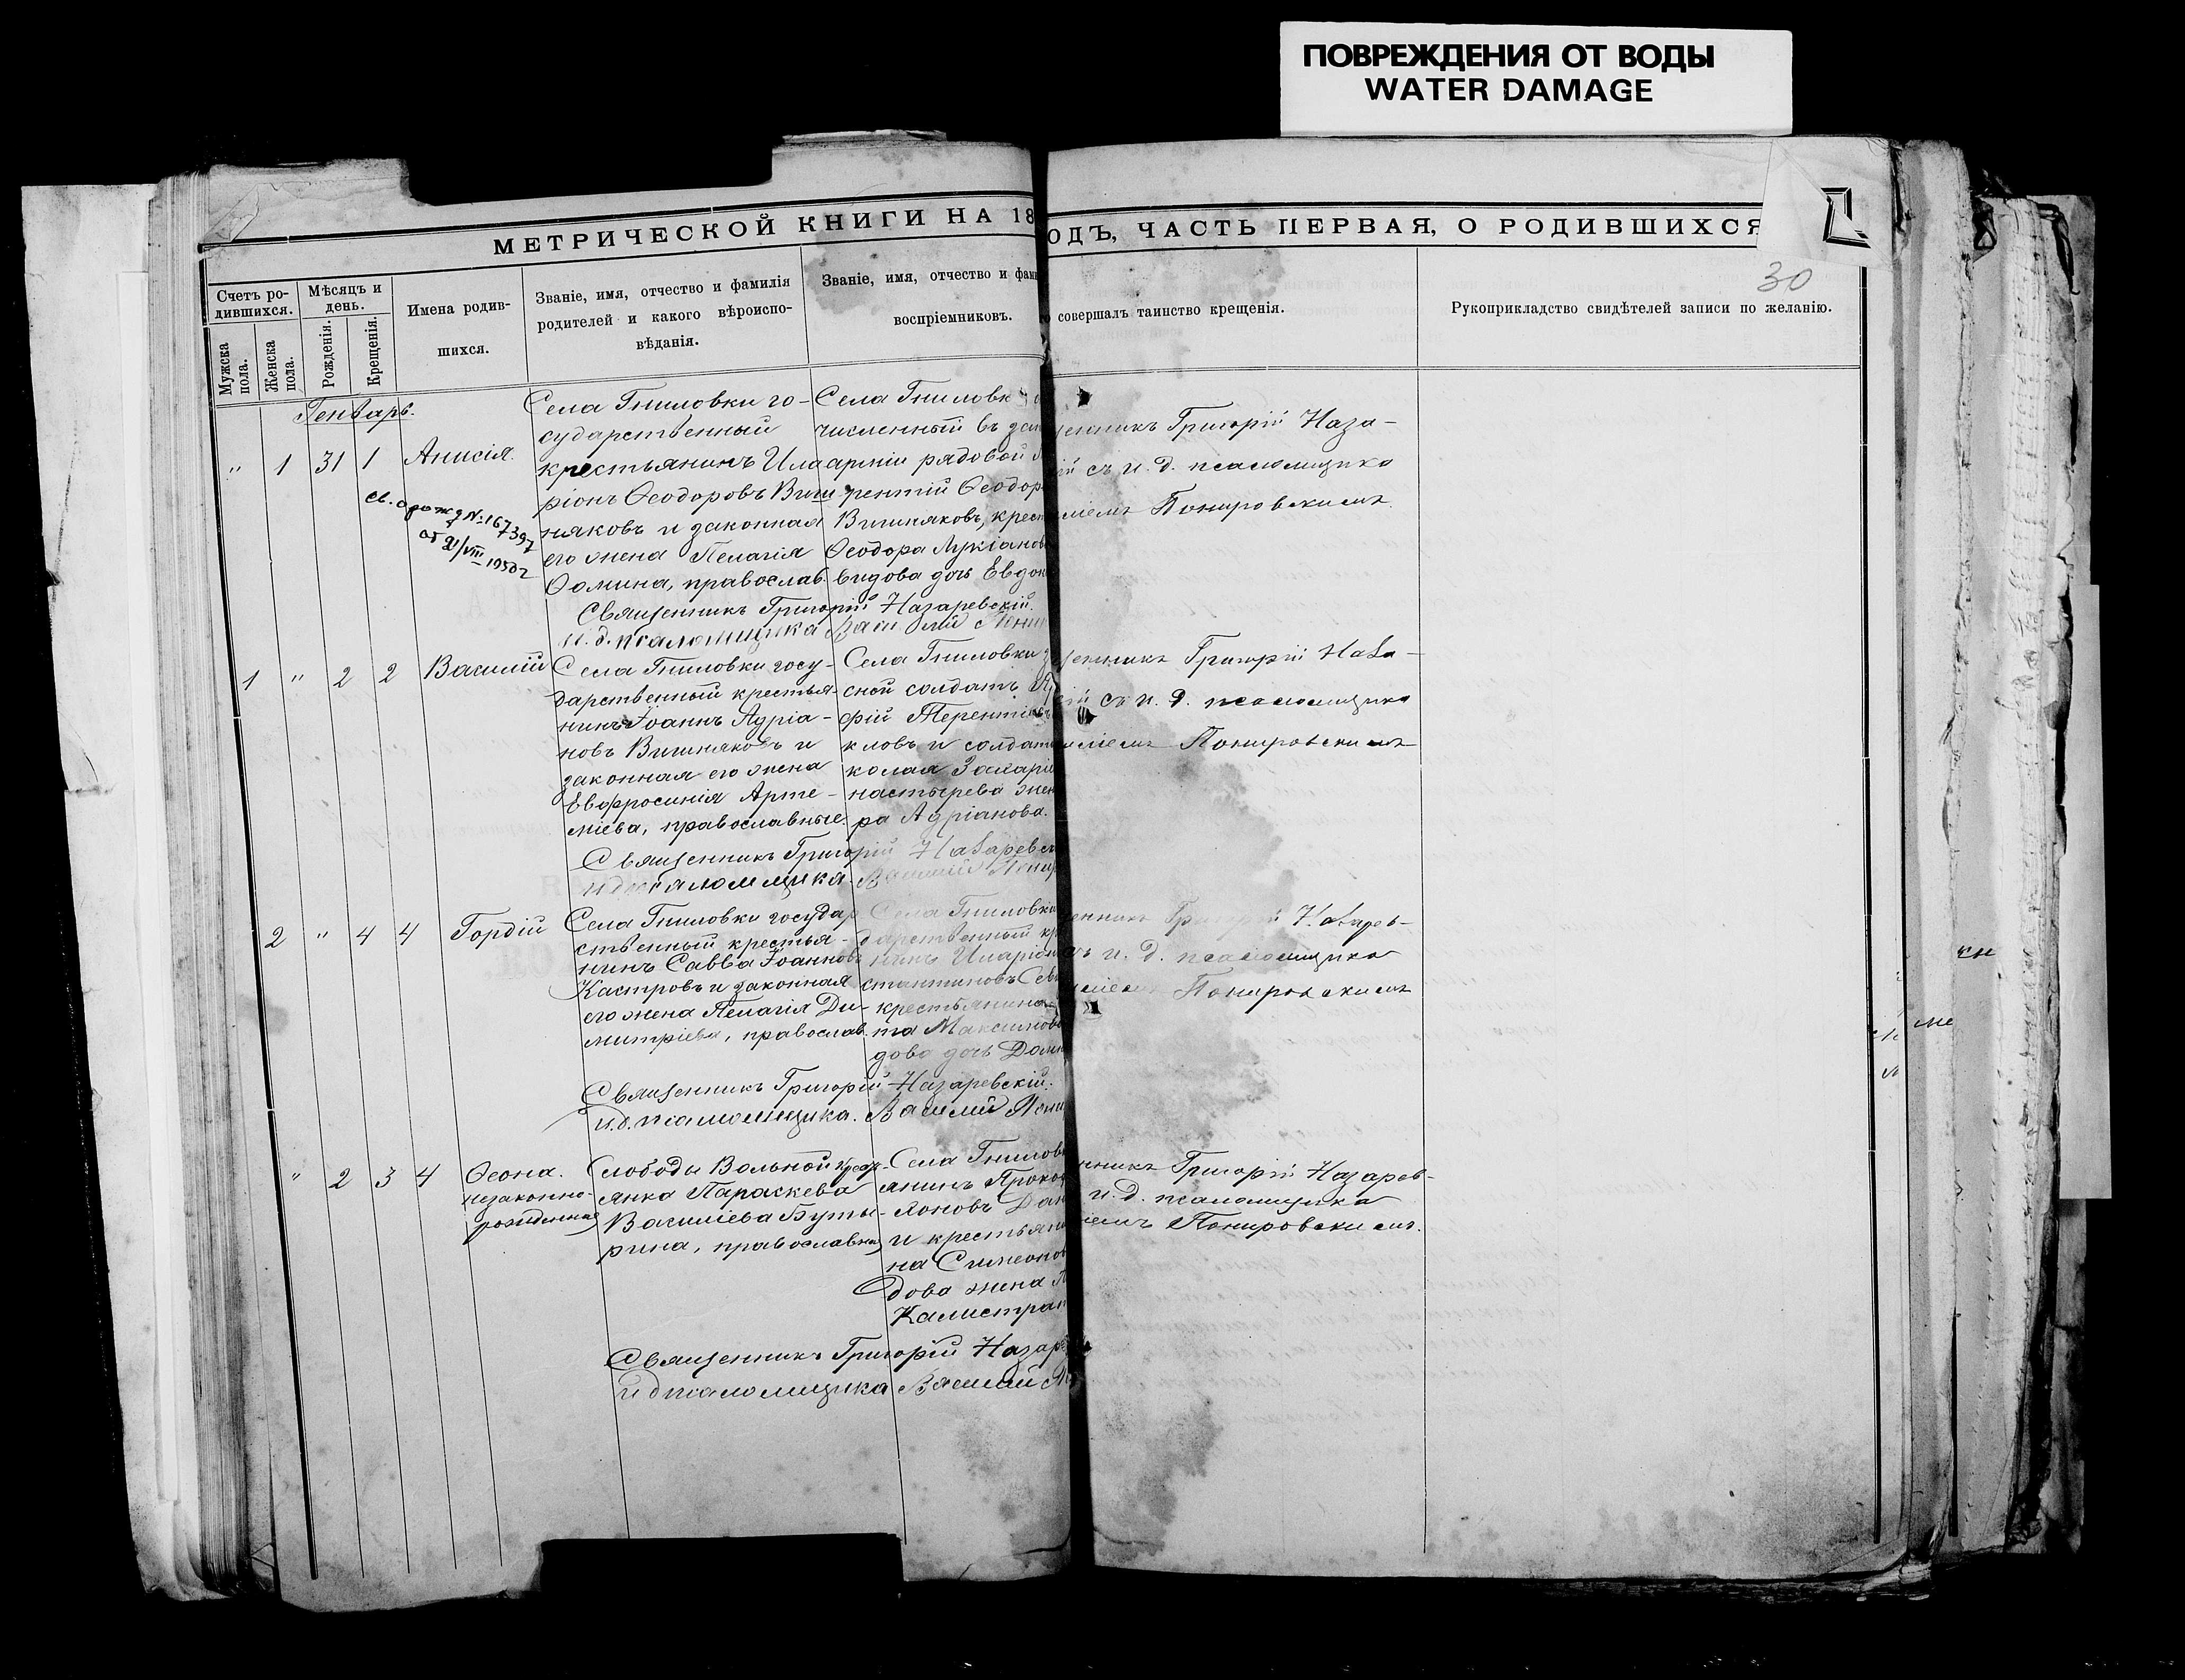 ПОВРЕЖДЕНИЯ ОТ ВОДЫ
WATER DAMAGE
МЕТРИЧЕСКОЙ КНИГИ НА 18
ОДЪ, ЧАСТЬ ПЕРВАЯ, О РОДИВШИХСЯ
30
Счетъ ро-
дившихся.
Мужска
пола.
Женска
пола.
Мѣсяцъ и
день.
Рожденія.
Крещенія.
Имена родив-
шихся.
Званіе, имя, отчество и фамилія
родителей и какого вѣроиспо-
вѣданія.
Званіе, имя, отчество и фам
воспріемниковъ.
совершалъ таинство крещенія.
Рукоприкладство свидѣтелей записи по желанію.
Генварь.
" 1 31 1 Анисія.
св. о рожд №167397
от XI/VIII-1950 г
Села Гниловки го-
сударственный
крестьянинъ Ила
ріонъ Ѳеодоровъ Виш
няковъ и законная
его жена Пелагія
Ѳомина, православ.
Села Гниловк
численный въ за
арміи рядовой
рентій Ѳеодор
Вишняковъ, крест
Ѳеодора Лукіанов
видова дочь Евдок
щенникъ Григорій Наза-
ій съ и. д. псаломщика
иліемъ Понировскимъ.
Священникъ Григорій Назаревскій.
и. д. псаломщика Василій Пони
1 " 2 2 Василій
Села Гниловки госу-
дарственный крестья-
нинъ Іоаннъ Адріа-
новъ Вишняковъ и
законная его жена
Евфросинія Арте-
міева, православные.
Села Гниловки
сной солдатъ
фій Терентіевъ
кловъ и солдат
колая Захарі
настырева жен
ра Адріанова.
щенникъ Григорій Наза-
ій съ и. д. псаломщика
иліемъ Понировскимъ
Священникъ Григорій Назаревс
и д псаломщика Василій Пони
2 " 4 4 Гордій
Села Гниловки государ
ственный крестья-
нинъ Савва Іоанновъ
Кастровъ и законная
его жена Пелагія Ди-
митріева, православ.
Села Гниловки
дарственный кр
нинъ Иларіон
стантиновъ
крестьянина
та Максимов
дова дочь Домн
енникъ Григорій Назарев-
съ и. д. псаломщика
иліемъ Понировскимъ
Священникъ Григорій Назаревскій.
и. д. псаломщика. Василій Пони
" 2 3 4 Ѳеона.
незаконно-
рожденная
Слободы Вольной крест-
янка Параскева
Василіева Буты-
рина, православная
Села Гнилов
янинъ Проко
лоновъ
и крестьян
на Симеонов
дова жена
Калистрат
нникъ Григорій Назарев-
и. д. псаломщика
іемъ Понировскимъ.
Священникъ Григорій Назар
и д псаломщика Василій